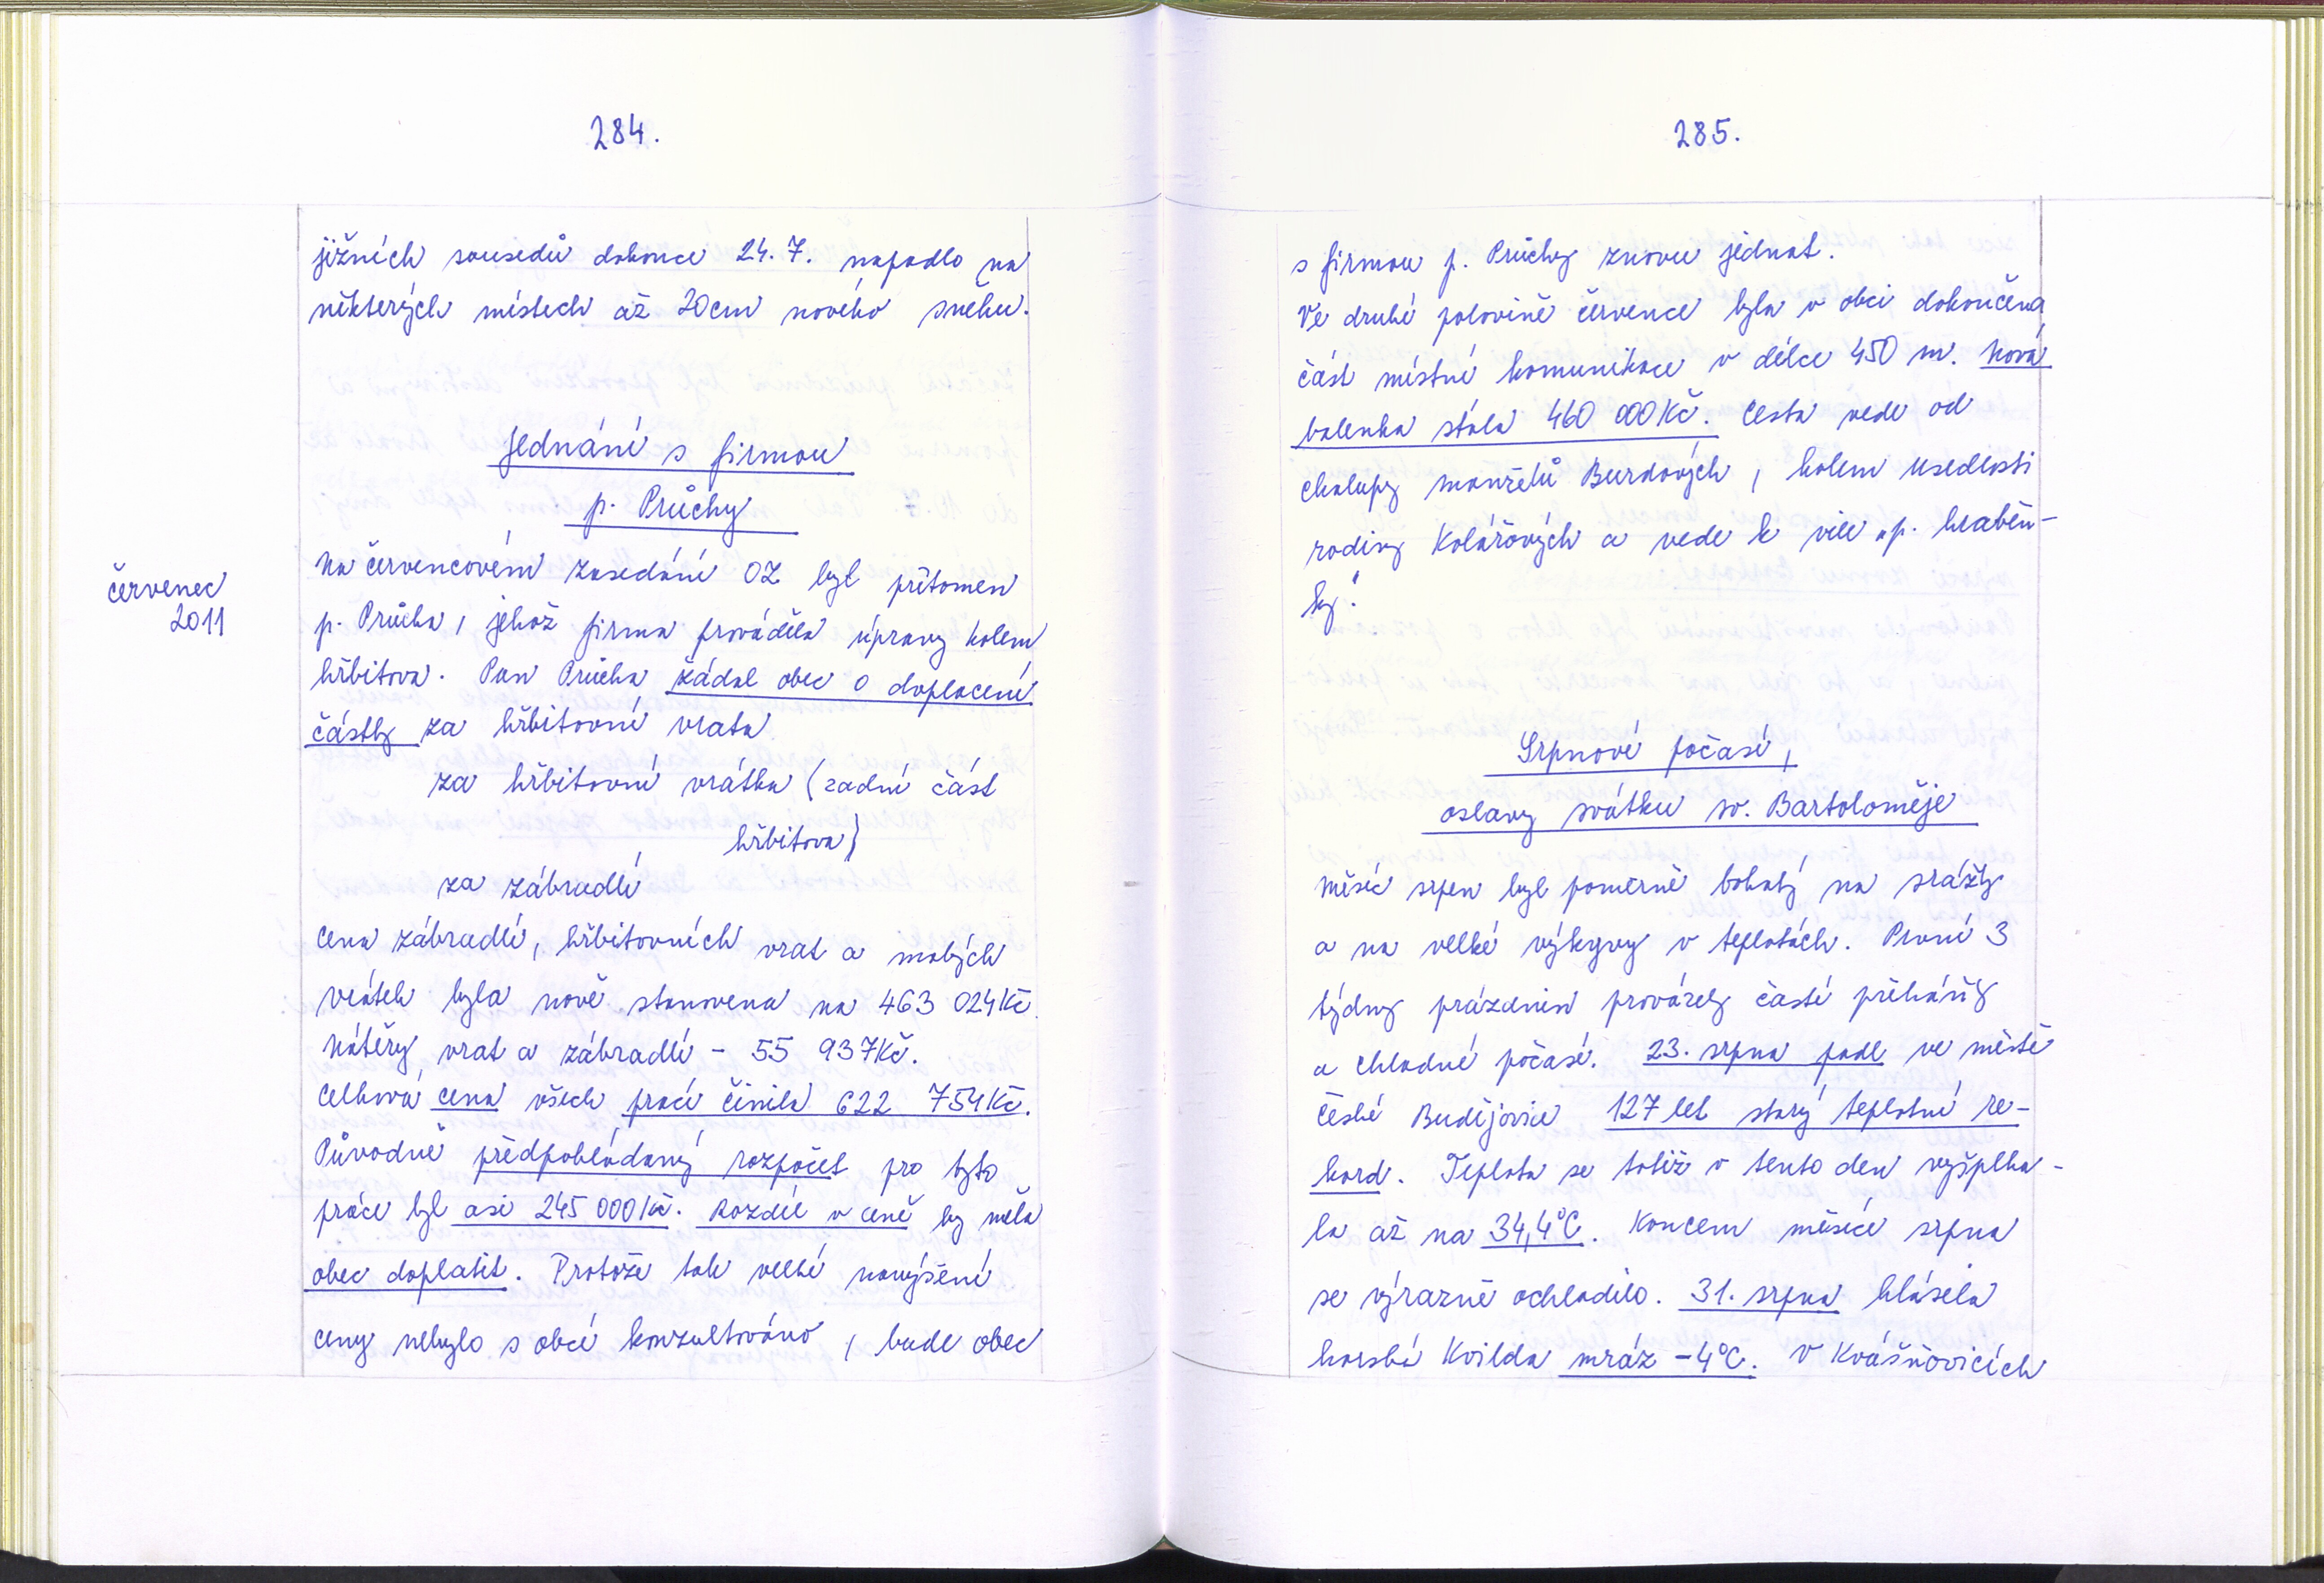 284.
jižních sousedů dokonce 24.7. napadlo na
některých místech až 20cm nového sněhu.
Jednání s firmou
p. Průchy
červenec
2011
Na červencovém zasedání OZ byl přítomen
p. Průcha, jehož firma prováděla úpravy kolem
hřbitova. Pan Průcha žádal obec o doplacení
částky za hřbitovní vrata
za hřbitovní vrátka (zadní část
hřbitova)
za zábradlí
Cena zábradlí, hřbitovních vrat a malých
vrátek byla nově stanovena na 463 024Kč.
Nátěry vrat a zábradlí - 55 937Kč.
Celková cena všech prací činila 622 754Kč.
Původně předpokládaný rozpočet pro tyto
práce byl asi 245 000Kč. Rozdíl v ceně by měla
obec doplatit. Protože tak velké navýšení
ceny nebylo s obcí konzultováno, bude obec
285.
s firmou p. Průchy znovu jednat.
Ve druhé polovině července byla v obci dokončena
část místní komunikace v délce 450 m. Nová
balenka stála 460 000Kč. Cesta vede od
chalupy manželů Burdových, kolem usedlosti
rodiny Kolářových a vede k vile „p. hraběn-
ky".
Srpnové počasí,
oslavy svátku sv. Bartoloměje
Měsíc srpen byl poměrně bohatý na srážky
a na velké výkyvy v teplotách. První 3
týdny prázdnin provázely časté přeháňky
a chladné počasí. 23. srpna padl ve městě
České Budějovice 127 let starý teplotní re-
kord. Teplota se totiž v tento den vyšplha-
la až na 34,4°C. Koncem měsíce srpna
se výrazně ochladilo. 31. srpna hlásila
horská Kvilda mráz -4°C. V Kvášňovicích